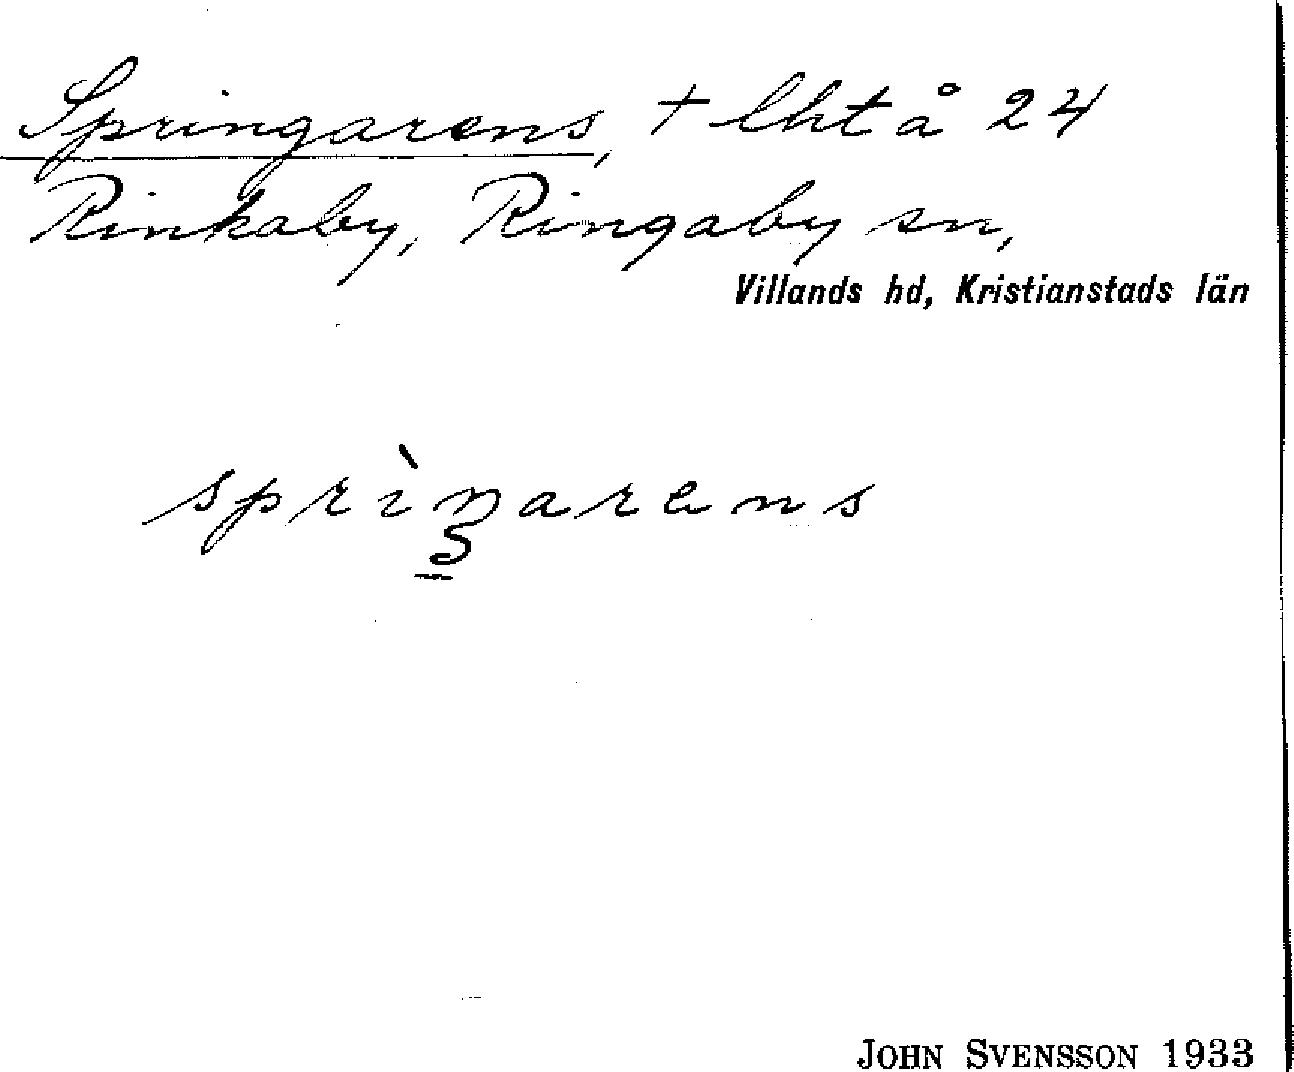 Springarens, + lhtå 24
Rinkaby, Ringaby sn,
Villands hd, Kristianstads län
sprìŋarens
JOHN SVENSSON 1933